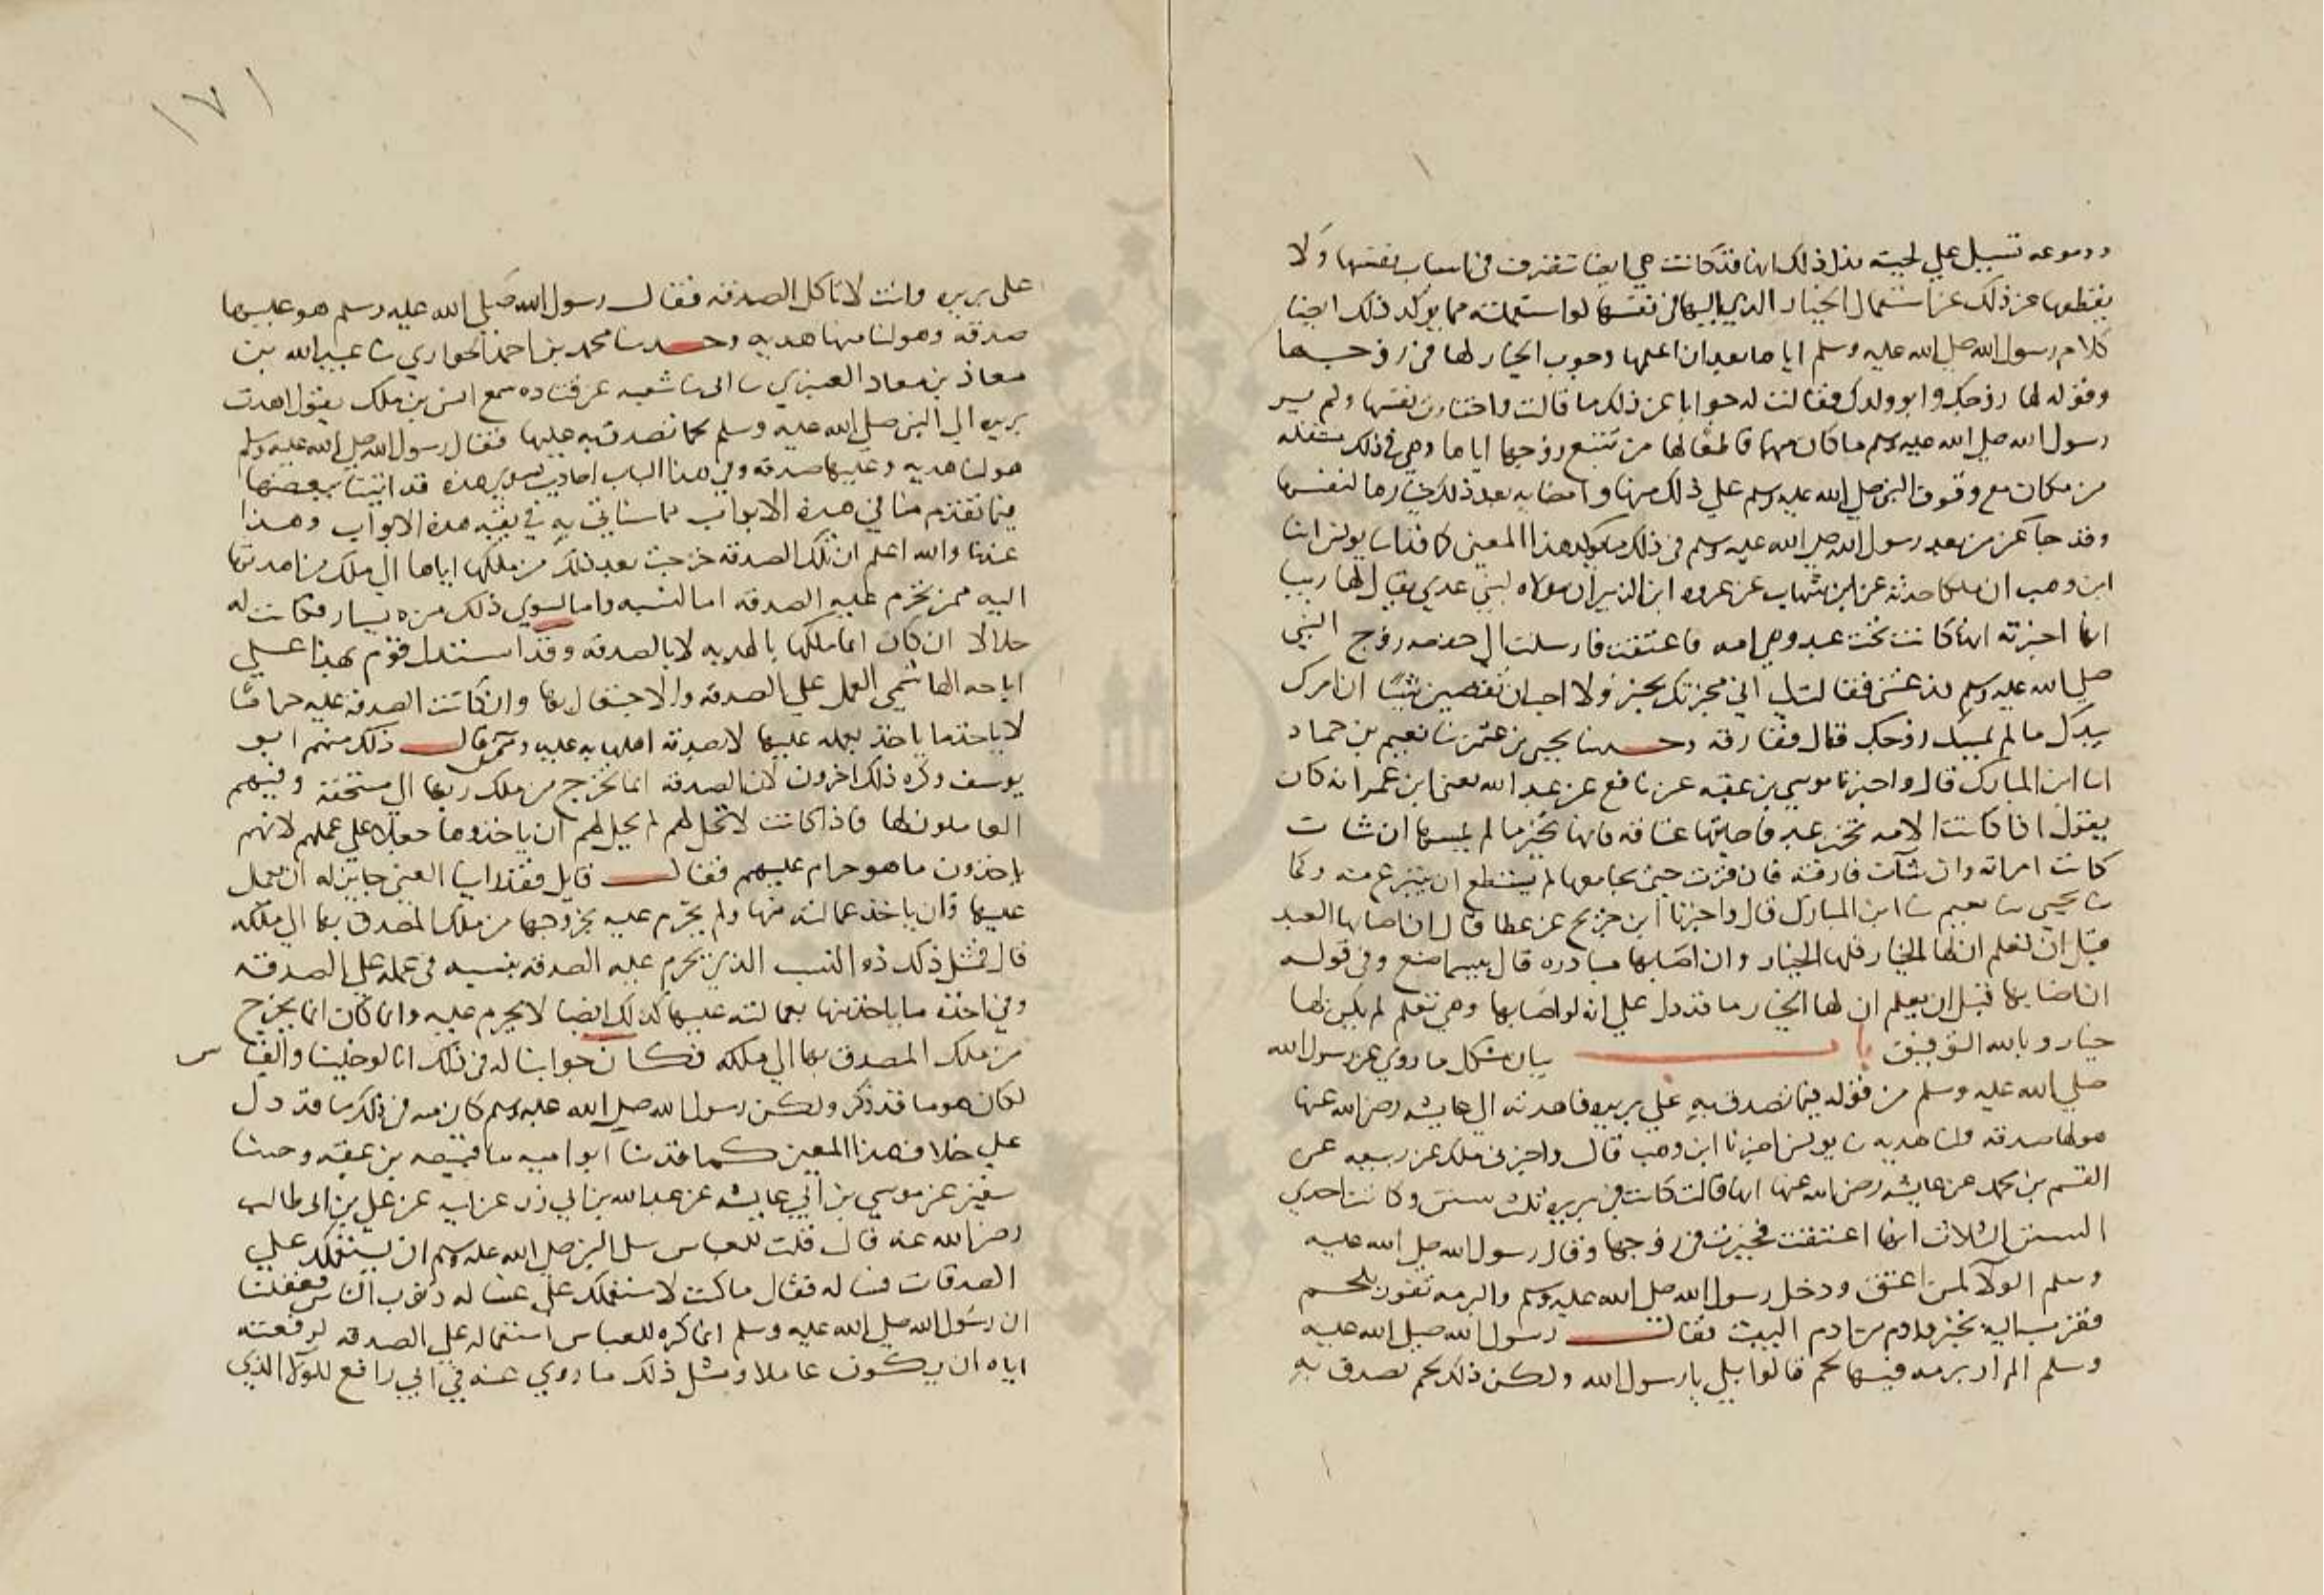 ودموعه تسيل على لحيته فدل ذلك انها قد كانت هي ايضا تتصرف في اسباب نفسها ولا
يقطعها عن ذلك عن استعمال الخيار الذي اليها في نفسها لو استعملته مما يوكد ذلك ايضا
كلام رسول الله صلى الله عليه وسلم اياها بعد ان اعلمها وجوب الخيار لها في زوجها
وقوله لها زوجك وابو ولدك فقالت له جوابا عن ذلك ما قالت واختارت نفسها ولم ير
رسول الله صلى الله عليه وسلم ما كان منها قاطعا لها من تتبع زوجها اياها وهي في ذلك متنقلة
من مكان مع وقوف النبي صلى الله عليه وسلم على ذلك منها وامضايه بعد ذلك خيارها لنفسها
وقد جا عن من بعد رسول الله صلى الله عليه وسلم في ذلك ما يوكد هذا المعنى كما قد ثنا يونس انا
ابن وهب ان ملكا حدثه عن ابن شهاب عن عروه ابن الزبير ان مولاه لبني عدي يقال لها زبرا
انها اخبرته انها كانت تحت عبد وهي امه فاعتقت فارسلت الى حفصه زوج النبي
صلى الله عليه وسلم فدعتني فقالت لي اني مخبرتك بخبر ولا احب ان تصنعين شيئا ان امرك
بيدك ما لم يمسك زوجك قال ففارقته وحدثنا يحيى بن عثمن ثنا نعيم بن حماد
انا ابن المبارك قال واخبرنا موسي بن عقبه عن نافع عن عبد الله يعني ابن عمر انه كان
يقول اذا كانت الامه تحت عبد فاصابتها عتاقه فانها تخير ما لم يمسها ان شات
كانت امراته وان شآت فارقته فان قرت حتى يجامعها لم يستطع ان ينتزع منه وكما
ثنا يحيى ثنا نعيم ثنا ابن المبارك قال واخبرنا ابن جريح عن عطا قال اذا اصابها العبد
قبل ان تعلم ان لها الخيار فلها الخيار وان اصابها مبادره قال بيسما صنع وفي قوله
اذا اصابها قبل ان يعلم ان لها الخيار ما قد دل على انه لو اصابها وهي تعلم لم يكن لها
خيار وبالله التوفيق باب بيان مشكل ما روي عن رسول الله
صلى الله عليه وسلم من قوله فيما تصدق به على بريره فاهدته الى عايشه رضي الله عنها
هو لها صدقه ولنا هديه ثنا يونس اخبرنا ابن وهب قال واخبرني ملك عن ربيعه عن
القسم بن محمد عن عايشه رضي الله عنها انها قالت كانت في بريره ثلث سنن وكانت احدي
السنن الثلاث انها اعتقت فخيرت في زوجها وقال رسول الله صلى الله عليه
وسلم الولآ لمن اعتق ودخل رسول الله صلى الله عليه وسلم والبرمه تفور بلحم
فقرب اليه بخبز وادم من ادم البيت فقال رسول الله صلى الله عليه
وسلم الم ار برمه فيها لحم قالوا بلي يا رسول الله ولكن ذلك لحم تصدق به
١٧١
على بريره وانت لا تاكل الصدقه فقال رسول الله صلى الله عليه وسلم هو عليها
صدقه وهو لنا منها هديه وحدثنا محمد بن احمد الجواربي ثنا عبيد الله بن
معاذ بن معاذ العنبري ثنا ابي ثنا شعبه عن قتاده سمع انس بن ملك يقول اهدت
بريره الى النبي صلى الله عليه وسلم لحما تصدق به عليها فقال رسول الله صلى الله عليه وسلم
هو لنا هديه وعليها صدقه وفي هذا الباب احاديث سوى هذه قد اتينا ببعضها
فيما تقدم منا في هذه الابواب مما سناتي به في بقيه هذه الابواب وهذا
عندنا والله اعلم ان تلك الصدقه خرجت بعد ذلك من ملكها اياها الى ملك من اهدتها
اليه ممن تحرم عليه الصدقه اما لنسبه واما لسوي ذلك من يسار فكانت له
حلالا ان كان انما ملكها بالهديه لا بالصدقه وقد استدل قوم بهذا على
اباحه الهاشمي العمل على الصدقه والاجتعال منها وان كانت الصدقه عليه حراما
لان ما ياخذ بعمله عليها لا بصدقه اهلها به عليه وممن قال ذلك منهم ابو
يوسف وكره ذلك اخرون لان الصدقه انما تخرج من ملك ربها الى مستحقه وفيهم
العاملون لها فاذا كانت لا تحل لهم لم يحل لهم ان ياخذوها جعلا على عملهم لانهم
ياخذون ما هو حرام عليهم فقال قايل فقد راينا الغني جايز له ان يعمل
عليها وان ياخذ عمالته منها ولم يحرم عليه بخروجها من ملك المصدق بها الى ملكه
قال فمثل ذلك ذو النسب الذي يحرم عليه الصدقه بنسبه في عمله على الصدقه
وفي اخذه ما ياخذ منها بعمالته عليها كذلك ايضا لا يحرم عليه وان كان انما يخرج
من ملك المصدق بها الى ملكه فكان جوابنا له في ذلك انا لو خلينا والقياس
لكان هو ما قد ذكر ولكن رسول الله صلى الله عليه وسلم كان منه في ذلك ما قد دل
على خلاف هذا المعنى كما قد ثنا ابو اميه ثنا قبيصه بن عقبه وحدثنا
سفين عن موسي بن ابي عايشه عن عبد الله بن ابي رزين عن ابيه عن علي بن ابي طالب
رضي الله عنه قال قلت للعباس سل النبي صلى الله عليه وسلم ان يستعملك على
الصدقات فساله فقال ما كنت لاستعملك على غساله ذنوب الناس فعقلنا
ان رسول الله صلى الله عليه وسلم انما كره للعباس استعماله على الصدقه لرفعته
اياه ان يكون عاملا ومثل ذلك ما روي عنه في ابي رافع للولا الذي